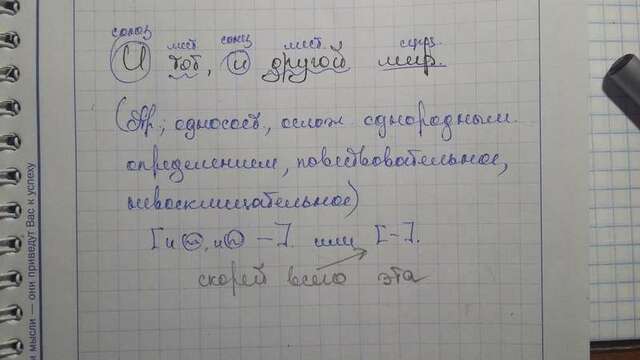 союз мест союз мест сущ.
И тот, и другой мир.
(Др., односост, ослож. однородным.
определением, повествовательное,
невосклицательное)
[и О, и О –]. или [–].
скорей всего эта
и мысли — они приведут Вас к успеху